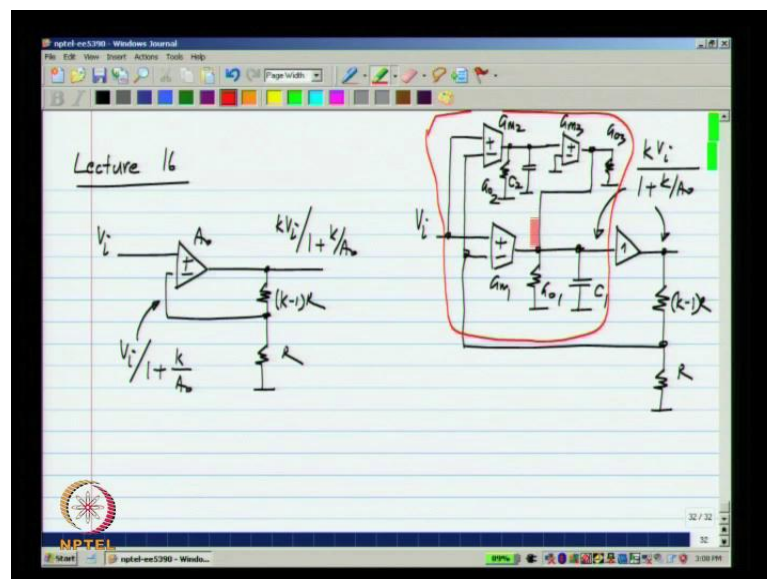 nptel-ee5390 - Windows Journal
File Edit View Insert Actions Tools Help
Page Width
B I
Lecture 16
Vi
A₀
kVi/1+k/A₀
(k-1)R
R
Vi/1+k/A₀
Gm2
Gm3
Go3
Go2
C2
Vi
Gm1
Go1
C1
kVi/1+k/A₀
1
(k-1)R
R
NPTEL
32 / 32
32
Start
nptel-ee5390 - Windo...
89%
3:08 PM